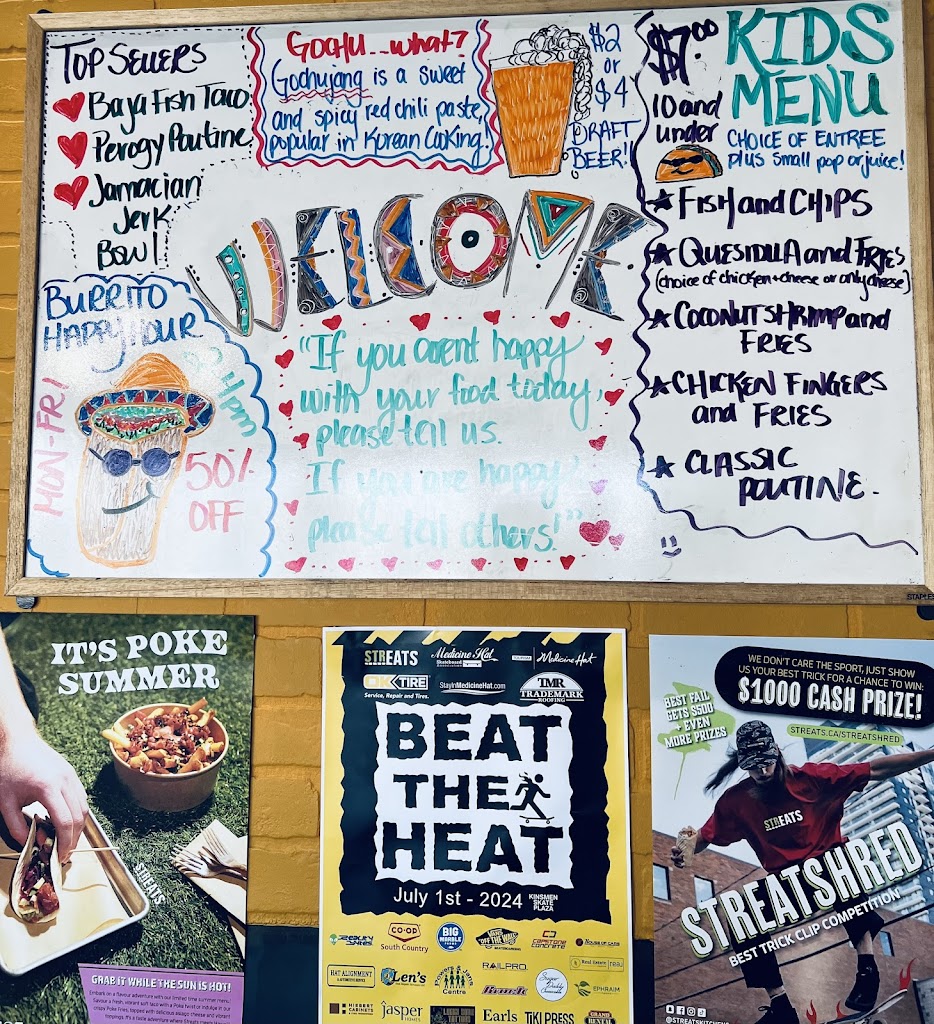 TOP SELLERS
Baja Fish Taco
Perogy Poutine
Jamacian
Jerk
Bowl
GOCHU..what?
Gochujang is a sweet
and spicy red chili paste,
popular in Korean Cooking!
$2
or
$4
DRAFT
BEER!!
$7.00
10 and
under
KIDS
MENU
CHOICE OF ENTREE
plus small pop or juice!
FISH and CHIPS
QUESIDILLA and FRIES
(choice of chicken + cheese or only cheese)
COCONUT SHRIMP and
FRIES
CHICKEN FINGERS
and FRIES
CLASSIC
POUTINE.
WELCOME
BURRITO
HAPPY HOUR
MON-FRI
50%
OFF
"If you arent happy
with your food today,
please tell us.
If you are happy,
please tell others!"
STAPLES
IT'S POKE
SUMMER
STREATS
GRAB IT WHILE THE SUN IS HOT!
STREATS
Medicine Hat
Medicine Hat
OK TIRE
Service, Repair and Tires.
StayInMedicineHat.com
TMR
TRADEMARK
ROOFING
BEAT
THE
HEAT
July 1st - 2024
KINSMEN
SKATE
PLAZA
CO-OP
South Country
BIG
MARBLE
VANS
"OFF THE WALL"
CAPSTONE
CONCRETE
HOUSE OF CARS
HAT ALIGNMENT
Len's
Centre
RAILPRO.
EPHRAIM
HIEBERT
CABINETS
Jasper
HOMES
Earls
TIKI PRESS
GRAND
RENTAL
WE DON'T CARE THE SPORT, JUST SHOW
US YOUR BEST TRICK FOR A CHANCE TO WIN:
$1000 CASH PRIZE!
STREATS.CA/STREATSHRED
BEST FAIL
GETS $500
+ EVEN
MORE PRIZES
STREATS
STREATSHRED
BEST TRICK CLIP COMPETITION